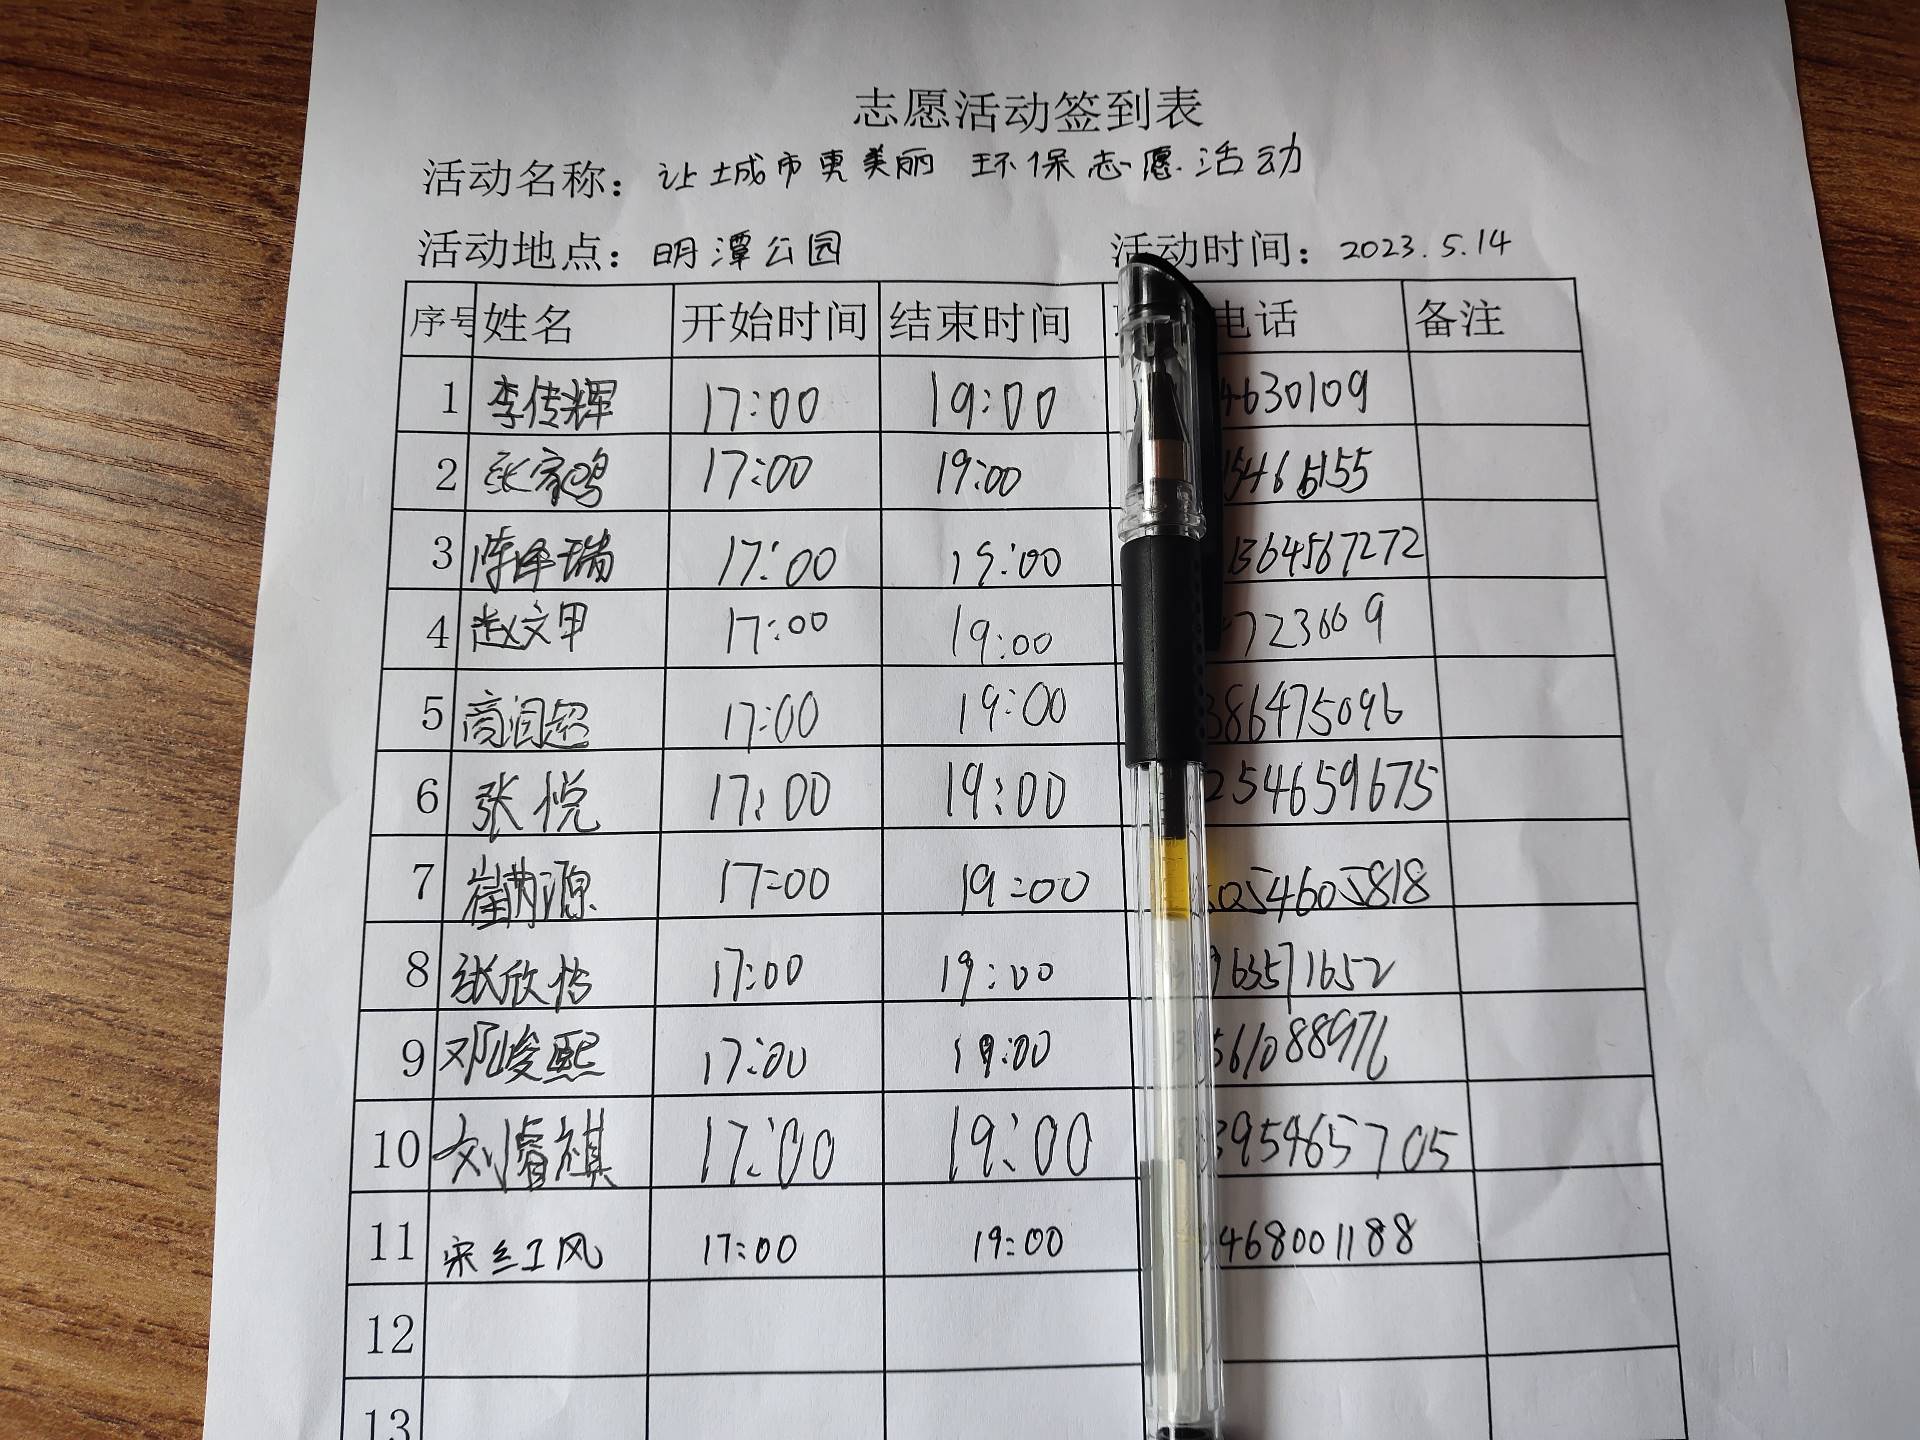 志愿活动签到表
活动名称：让城市更美丽 环保志愿活动
活动地点：明潭公园 活动时间：2023.5.14
序号 姓名 开始时间 结束时间 电话 备注
1 李传辉 17:00 19:00 4630109
2 张家鸣 17:00 19:00
3 陈泽瑞 17:00 19:00 1364567272
4 赵文甲 17:00 19:00 723669
5 商润超 17:00 19:00 386475096
6 张悦 17:00 19:00 254659675
7 17:00 19:00 054605818
8 张欣怡 17:00 19:00 63571652
9 邓峻熙 17:00 19:00 561088976
10 刘睿祺 17:00 19:00 395465705
11 宋红风 17:00 19:00 468001188
12
13